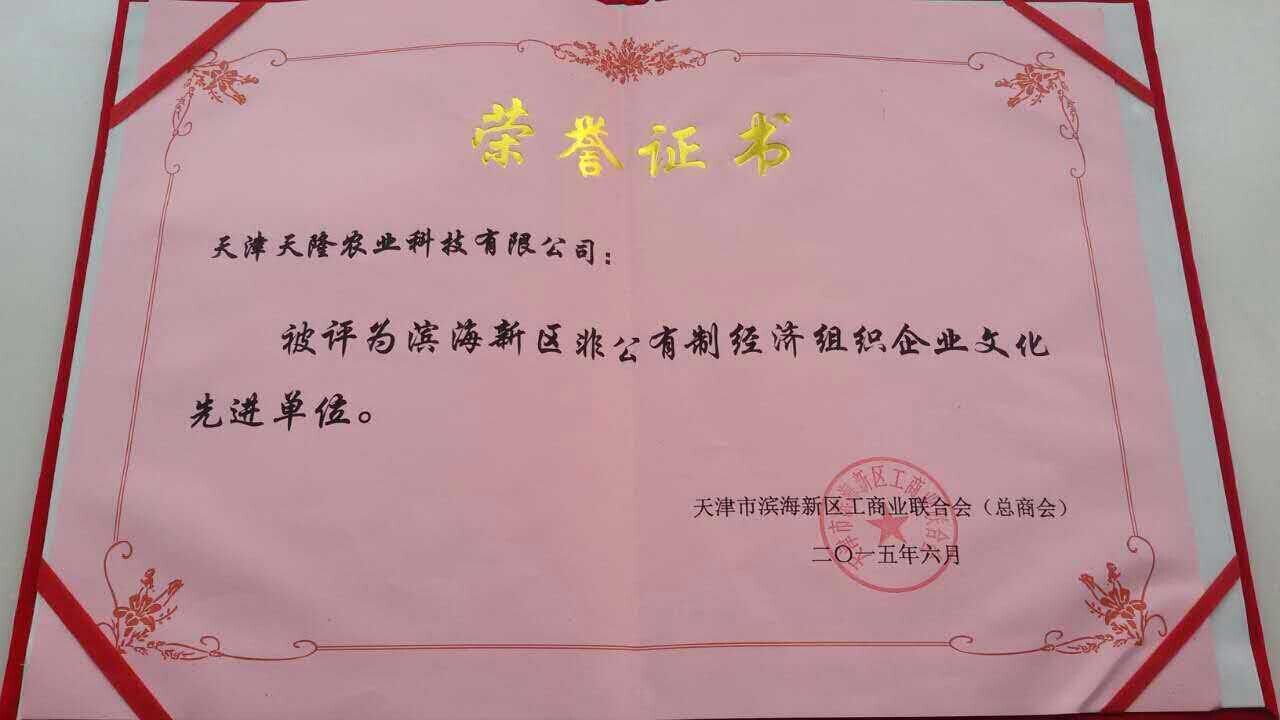 荣誉证书
天津天隆农业科技有限公司：
被评为滨海新区非公有制经济组织企业文化
先进单位。
天津市滨海新区工商业联合会（总商会）
二〇一五年六月
天津市滨海新区工商业联合会